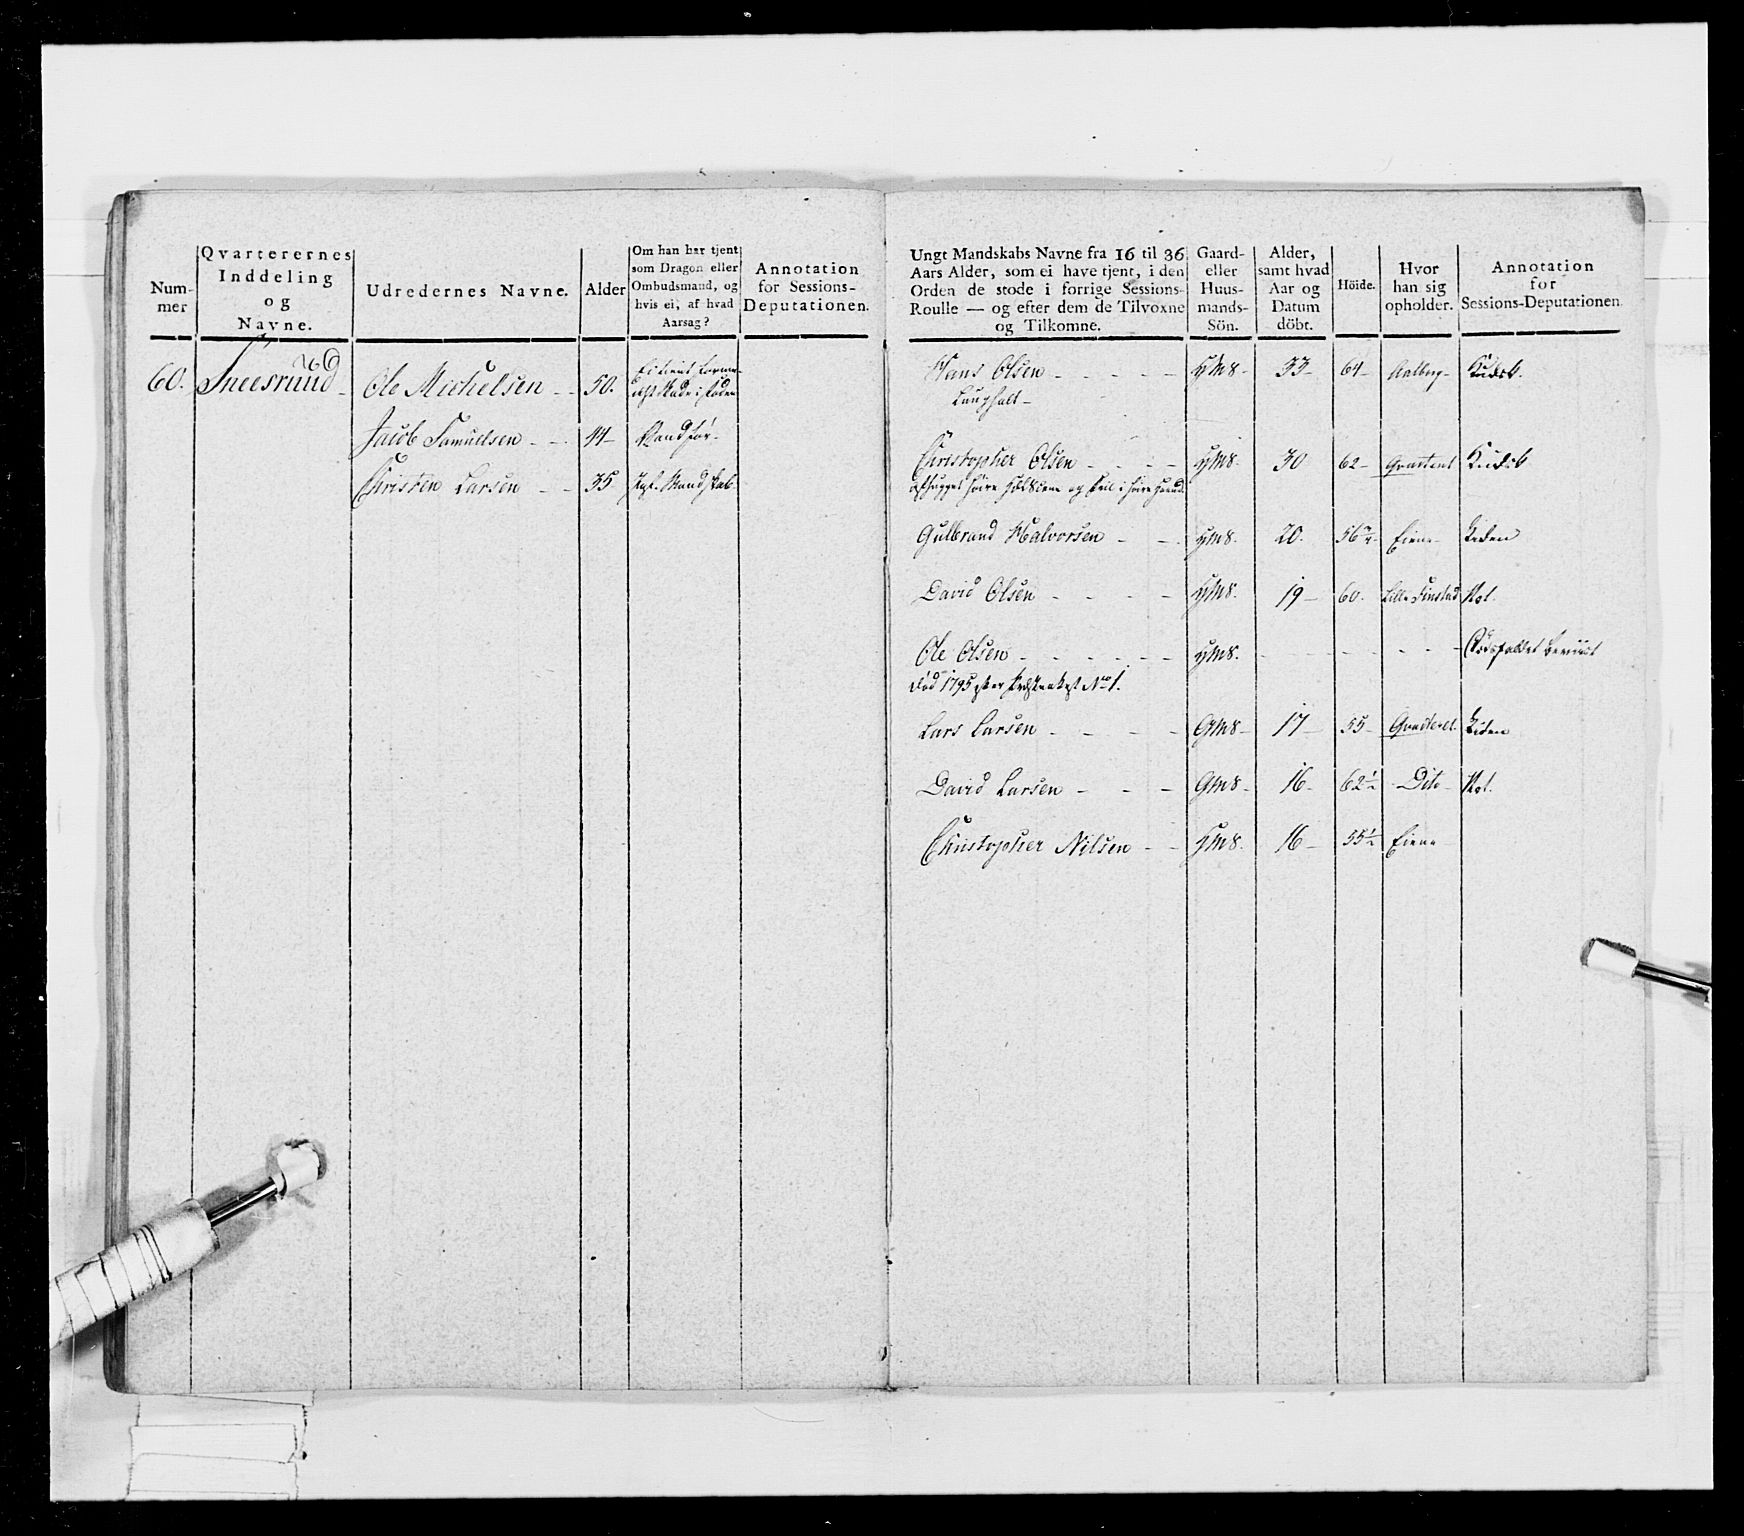 Num-
mer
Qvarterernes
Inddeling
og
Navne.
Udredernes Navne.
Alder
Om han har tjent
som Dragon eller
Ombudsmand, og
hvis ei, af hvad
Aarsag?
Annotation
for Sessions-
Deputationen.
60. Sneesrud
Ole Michelsen - - 50.
Jacob Samuelsen - - 44-
Christen Larsen - - 35
Ungt Mandskabs Navne fra 16 til 36
Aars Alder, som ei have tjent, i den
Orden de stode i forrige Sessions-
Roulle — og efter dem de Tilvoxne
og Tilkomne.
Gaard-
eller
Huus-
mands-
Sön.
Alder,
samt hvad
Aar og
Datum
döbt.
Höide.
Hvor
han sig
opholder.
Annotation
for
Sessions-Deputationen.
Hans Olsen - - - - - HMS- 33- 64- Aalberg-
Christopher Olsen - - - - HMS. 30 62-
Gulbrand Halvorsen - - HMS. 20. Eiene- Liden
David Olsen - - - - HMS. 19- 60. Lille Finstad Not.
Ole Olsen - - - - - - HMS.
död 1795 No 1.
Lars Larsen - - - - GMS- 17- 55- Liden
David Larsen - - - GMS- 16- 62½ Dito- Not.
Christopher Nilsen - - HMS. 16- 55½ Eiene